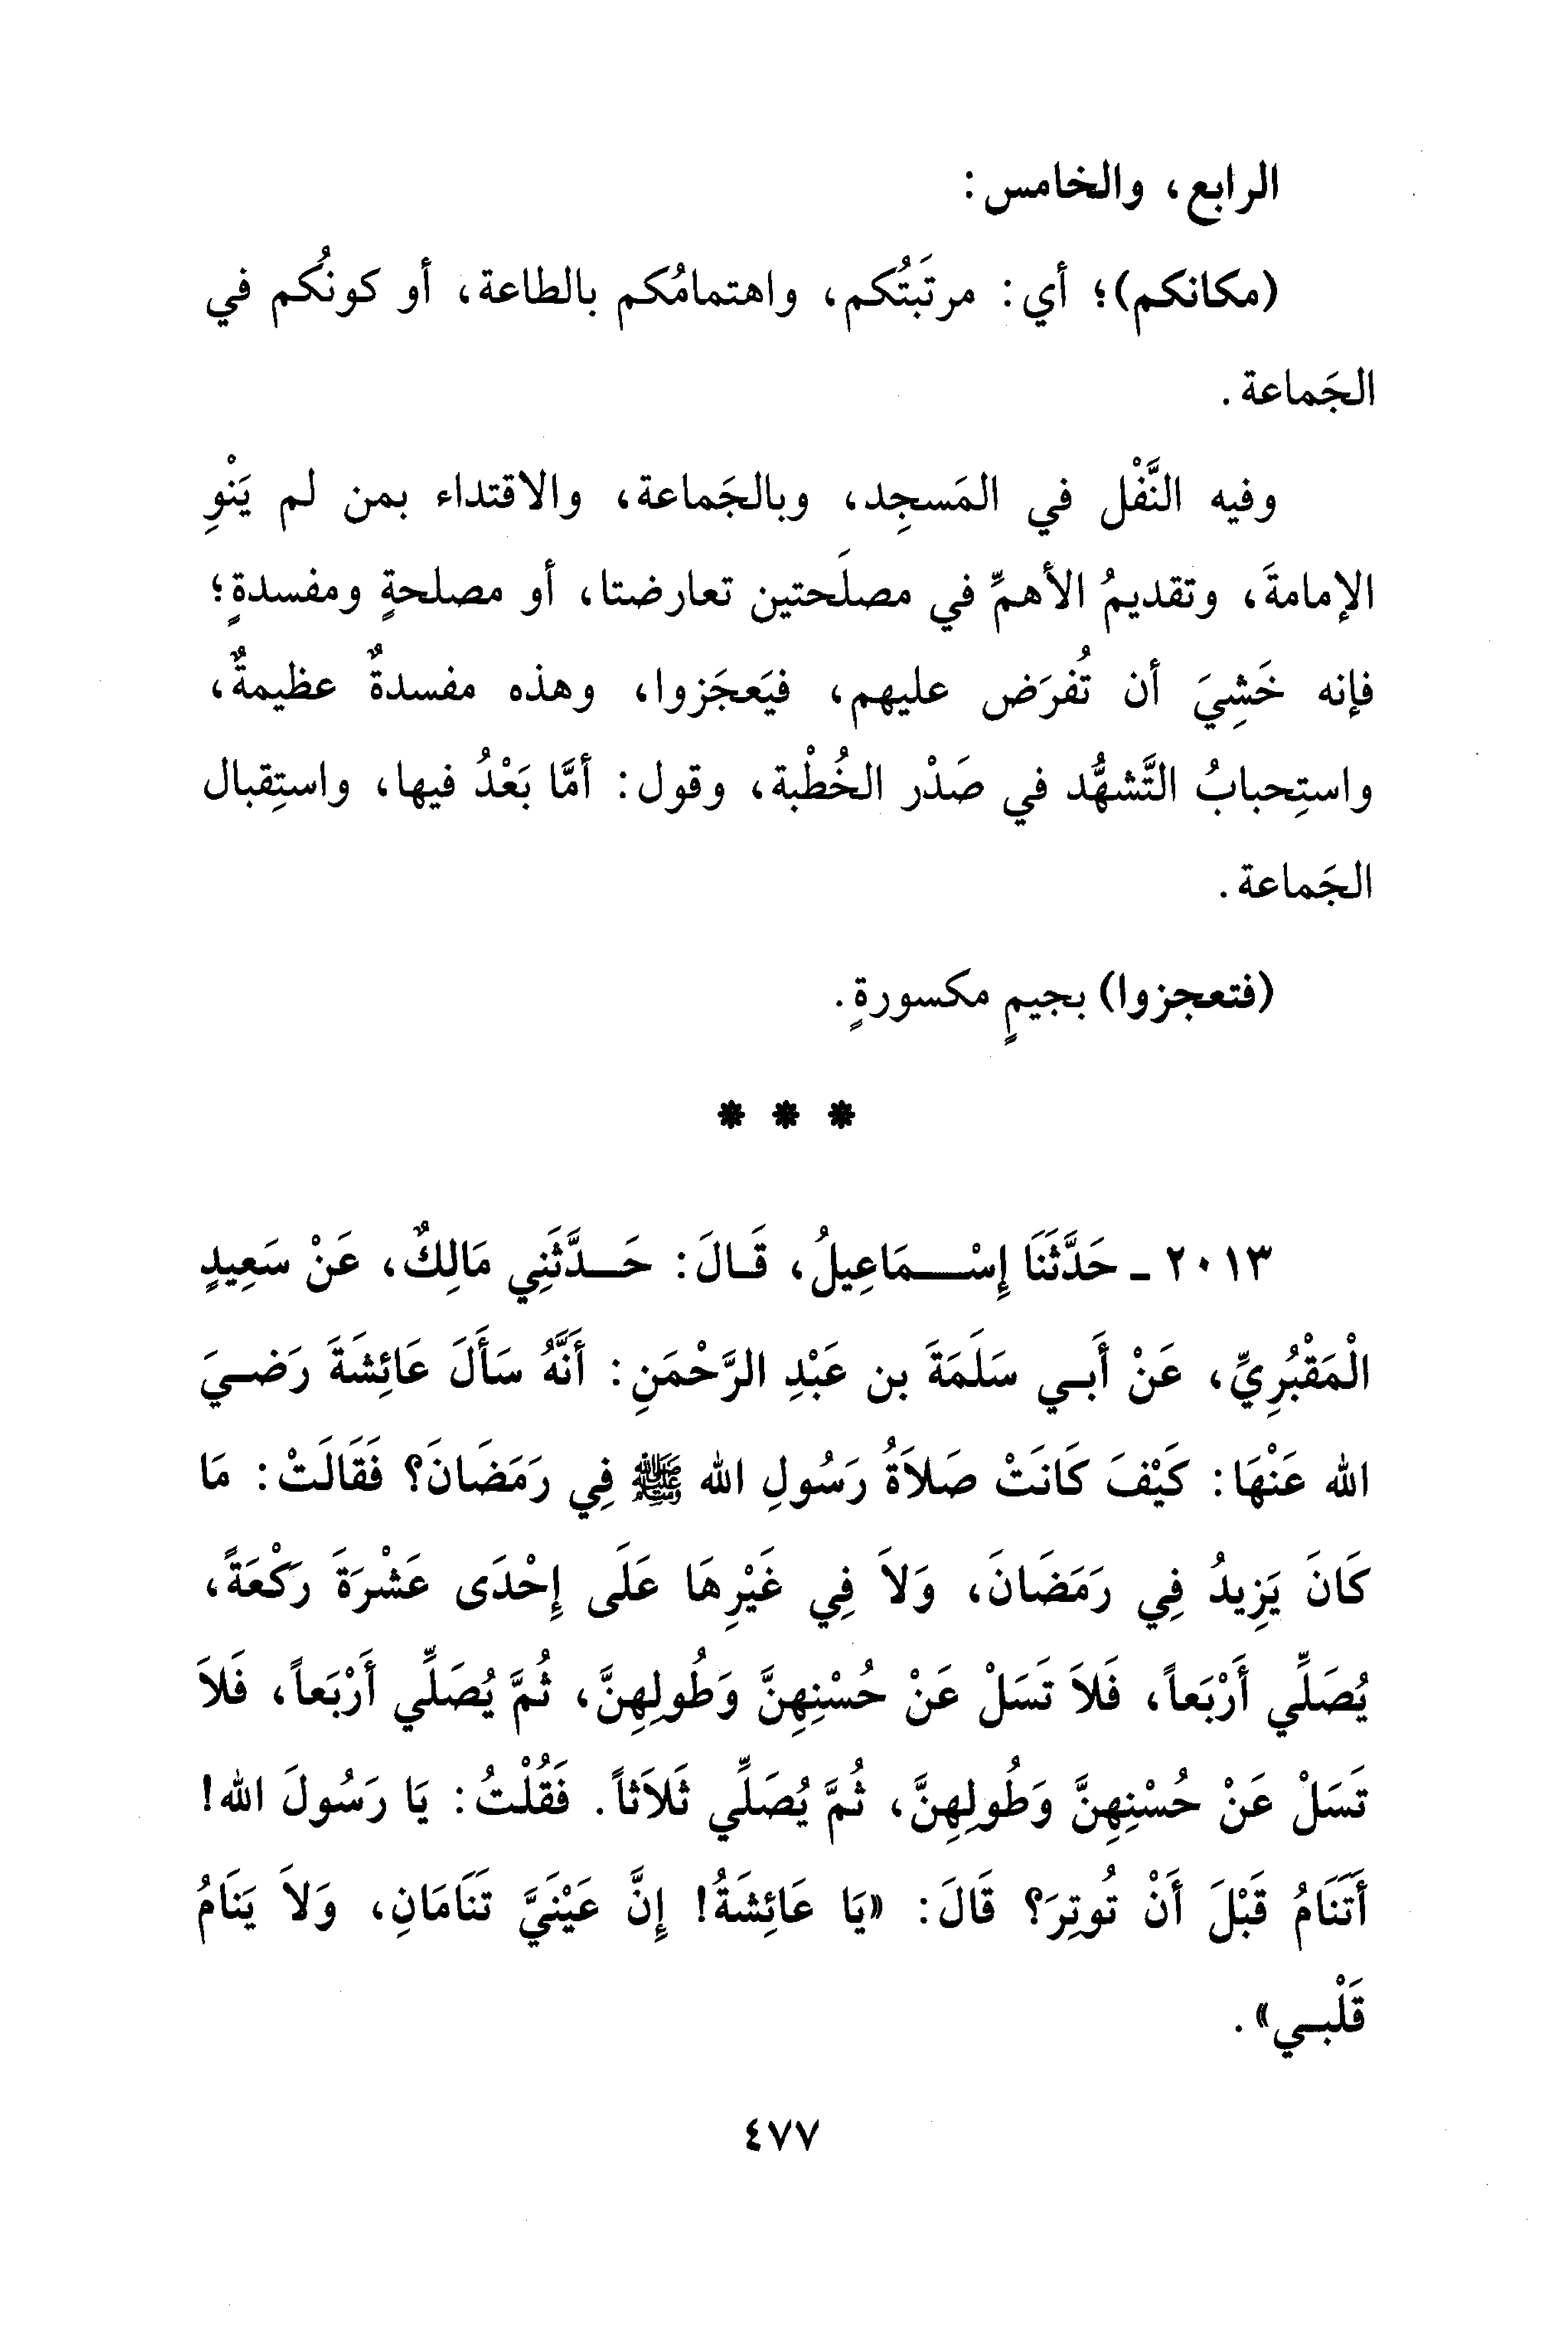 الرابع، والخامس:
(مكانكم)؛ أي: مرتَبَتُكم، واهتمامُكم بالطاعة، أو كونُكم في
الجَماعة.
وفيه النَّفْل في المَسجِد، وبالجَماعة، والاقتداء بمن لم يَنْوِ
الإمامةَ، وتقديمُ الأهمِّ في مصلَحتين تعارضتا، أو مصلحةٍ ومفسدةٍ؛
فإنه خَشِيَ أن تُفرَض عليهم، فيَعجَزوا، وهذه مفسدةٌ عظيمةٌ،
واستِحبابُ التَّشهُّد في صَدْر الخُطْبة، وقول: أمَّا بَعْدُ فيها، واستِقبال
الجَماعة.
(فتعجزوا) بجيمٍ مكسورةٍ.
* * *
٢٠١٣ ـ حَدَّثَنَا إِسْـمَاعِيلُ، قَـالَ: حَـدَّثَنِي مَالِكٌ، عَنْ سَعِيدٍ
الْمَقْبُرِيِّ، عَنْ أَبـي سَلَمَةَ بن عَبْدِ الرَّحْمَنِ: أَنَّهُ سَأَلَ عَائِشَةَ رَضـيَ
الله عَنْهَا: كَيْفَ كَانَتْ صَلاَةُ رَسُولِ الله ﷺ فِي رَمَضَانَ؟ فَقَالَتْ: مَا
كَانَ يَزِيدُ فِي رَمَضَانَ، وَلاَ فِي غَيْرِهَا عَلَى إِحْدَى عَشْرَةَ رَكْعَةً،
يُصَلِّي أَرْبَعاً، فَلاَ تَسَلْ عَنْ حُسْنِهِنَّ وَطُولِهِنَّ، ثُمَّ يُصَلِّي أَرْبَعاً، فَلاَ
تَسَلْ عَنْ حُسْنِهِنَّ وَطُولِهِنَّ، ثُمَّ يُصَلِّي ثَلاَثاً. فَقُلْتُ: يَا رَسُولَ الله!
أَتَنَامُ قَبْلَ أَنْ تُوتِرَ؟ قَالَ: «يَا عَائِشَةُ! إِنَّ عَيْنَيَّ تَنَامَانِ، وَلاَ يَنَامُ
قَلْبـي».
٤٧٧